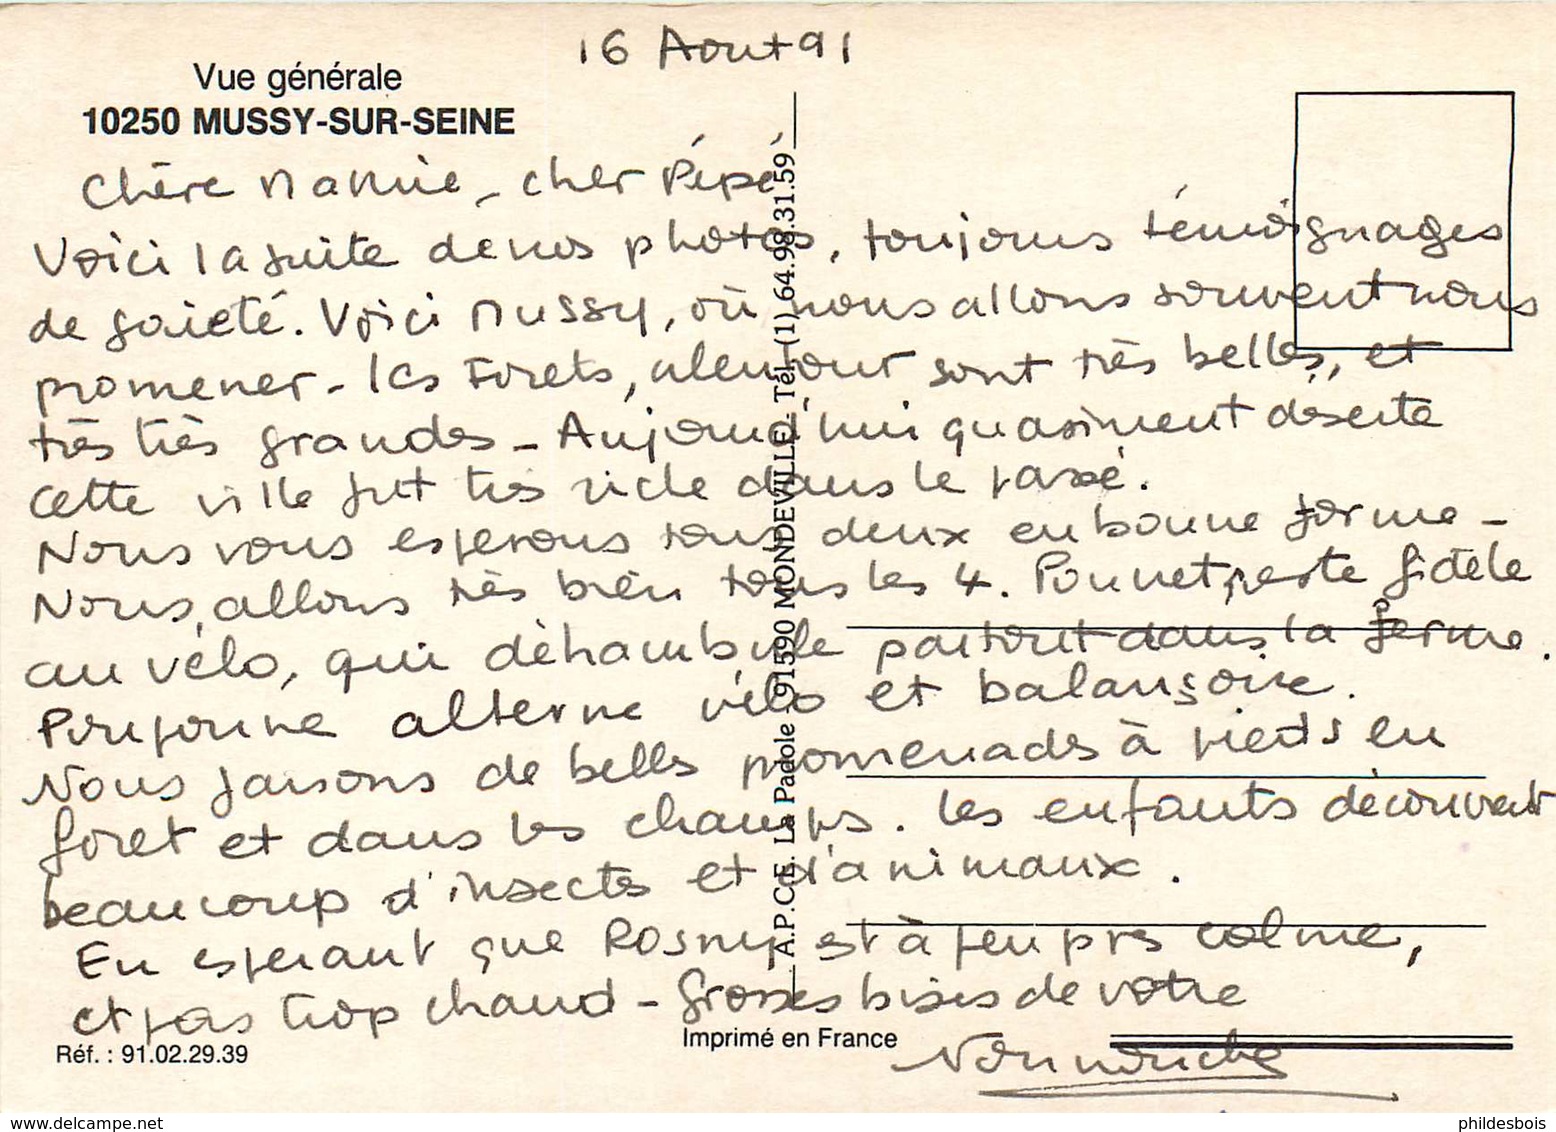 16 Aout 91
Vue générale
10250 MUSSY-SUR-SEINE
Chère Mamie, cher Pépé,
Voici la suite de nos photos, toujours témoignages
de gaieté. Voici Mussy, où nous allons souvent nous
promener - les Forets, alentour sont très belles, et
très très grandes - Aujourd'hui quasiment déserte
cette ville fut très riche dans le passé.
Nous vous esperons tous deux en bonne forme -
Nous, allons très bien tous les 4. reste fidèle
au vélo, qui déhambule partout dans la ferme.
alterne vélo et balançoire.
Nous faisons de belles promenades à pieds en
foret et dans les champs. Les enfants découvrent
beaucoup d'insectes et d'animaux.
En esperant que Rosny est à peu près calme,
et pas trop chaud - Grosses bises de votre
Nounouche
A.P.C.E. La Padole - 91590 MONDEVILLE - Tél. (1) 64.98.31.59
Imprimé en France
Réf. : 91.02.29.39
phildesbois